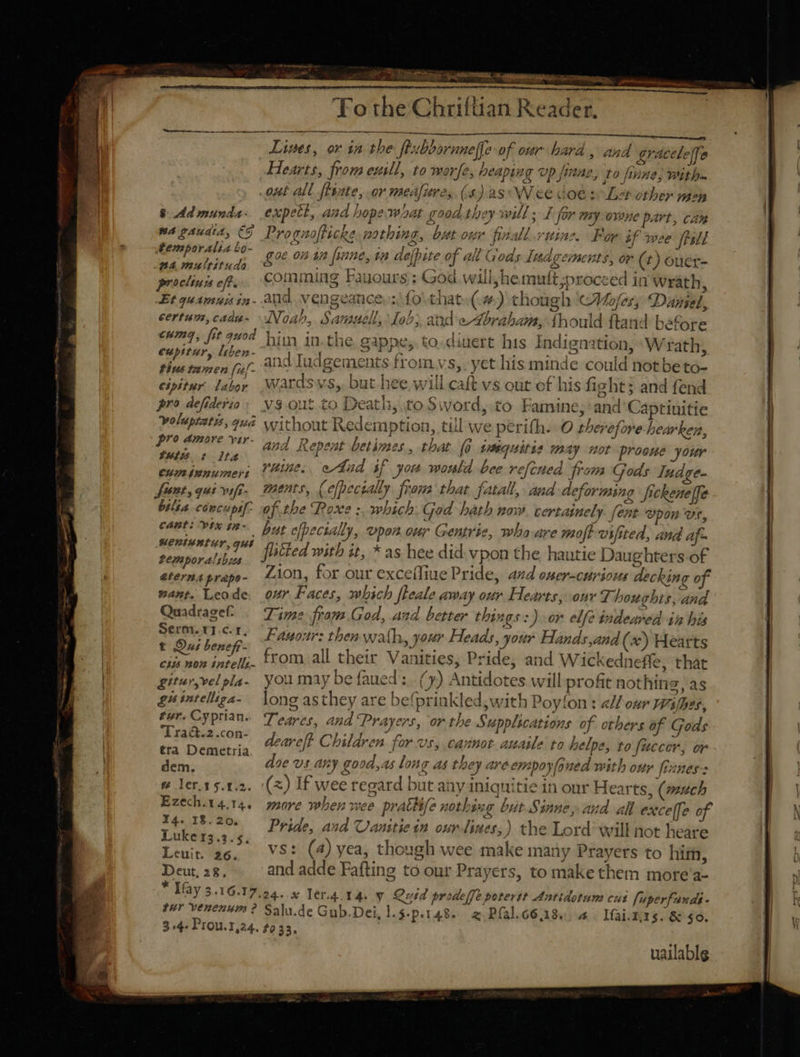 To the Chriſtian Reader.
Lines, or in the ſtubbornneſſe of our hard, and graceleſſe
Hearts, from euill, to worſe, heaping vp ſinne, to ſinne, with-
out all ſtinte, or meaſure, (s) as Wee doe: Let other men
expect, and hope what good they will; I for my owne part, can
Prognoſticke nothing, but our finall ruine. For if wee ſtill
goe on in ſinne, in deſpite of all Gods Iudgements, or (t) ouer-
comming Fauours: God will, he muſt, proceed in wrath,
and vengeance: ſo that (u) though Moſes, Daniel,
Noah, Samuell, Iob, and Abraham, ſhould ſtand before
him in the gappe, to diuert his Indignation, Wrath,
and Iudgements from vs, yet his minde could not be to-
wards vs, but hee will caſt vs out of his ſight; and ſend
vs out to Death, to Sword, to Famine, and Captiuitie
without Redemption, till we periſh. O therefore hearken,
and Repent betimes, that ſo iniquitie may not prooue your
ruine. And if you would bee reſcued from Gods Iudge-
ments, (eſpecially from that fatall, and deforming ſickeneſſe
of the Poxe: which God hath now certainely ſent vpon vs,
but eſpecially, vpon our Gentrie, who are moſt viſited, and af-
flicted with it, * as hee did vpon the hautie Daughters of
Zion, for our exceſſiue Pride, and ouer-curious decking of
our Faces, which ſteale away our Hearts, our Thoughts, and
Time from God, and better things:) or elſe indeared in his
Fauour: then waſh, your Heads, your Hands, and (x) Hearts
from all their Vanities, Pride, and Wickedneſſe, that
you may be ſaued: (y) Antidotes will profit nothing, as
long as they are beſprinkled, with Poyſon: all our Wiſhes,
Teares, and Prayers, or the Supplications of others of Gods
deareſt Children for vs, cannot auaile to helpe, to ſuccor, or
doe vs any good, as long as they are empoyſoned with our ſinnes:
(z) If wee regard but any iniquitie in our Hearts, (much
more when wee practiſe nothing but Sinne, and all exceſſe of
Pride, and Vanitie in our liues,) the Lord will not heare
vs: (a) yea, though wee make many Prayers to him,
and adde Faſting to our Prayers, to make them more a-
uailable
s Ad munda-
na gaudia, &
temporalia bo-
na multitudo
procliuis eſt.
Et quamuis in-
certum, cadu-
cumq, ſit quod
cupitur, liben-
tius tamen ſuſ-
cipitur labor
pro deſiderio
voluptatis, quã
pro amore vir-
tutis. t Ita
cum innumeri
ſunt, qui viſi-
bilia concupiſ-
cant: vix in-
ueniuntur, qui
temporalibus
æterna præpo-
nant. Leo de
Quadrageſ.
Serm. 11. c. 1.
t Qui benefi-
ciis non intelli-
gitur, vel pla-
gis intelliga-
tur. Cyprian.
Tract. 2. con-
tra Demetria
dem.
u Ier. 15. 1. 2.
Ezech. 14. 14.
14. 18. 20.
Luke 13. 3. 5.
Leuit. 26.
Deut. 28.
* Iſay 3. 16. 17. 24. x Ier. 4. 14. y Quid prodeſſe poterit Antidotum cui ſuperfundi-
tur venenum? Salu. de Gub. Dei, l. 5. p. 148. z Pſal. 66, 18. a Iſai. 1, 15. & 50.
3. 4. Prou. 1, 24. to 33.